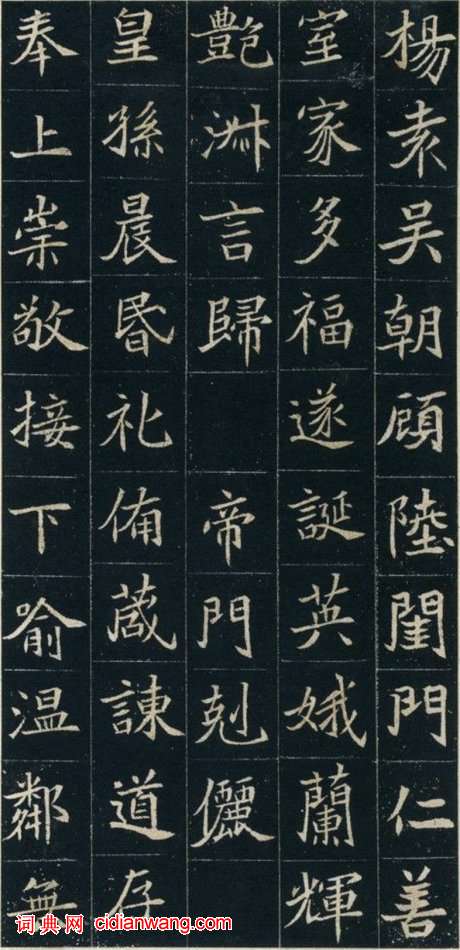 楊袁吳朝顧陸閨門仁善
室家多福遂誕英娥蘭輝
艷淑言歸 帝門剋儷
皇孫晨昬礼俻葴諫道存
奉上崇敬接下喻温鄰無
词典网 cidianwang.com